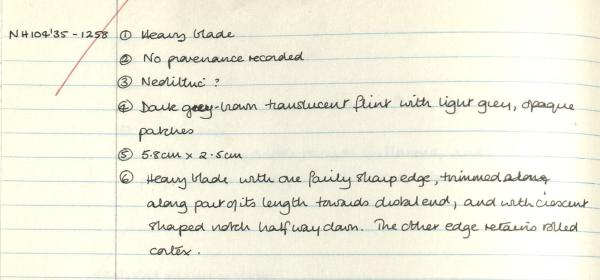 NH104'35-1258 ① Heavy blade
② No provenance recorded
③ Neolithic ?
④ Dark grey-brown translucent flint with light grey, opaque
patches
⑤ 5.8cm x 2.5cm
⑥ Heavy blade with one fairly sharp edge, trimmed along
along part of its length towards distal end, and with crescent
shaped notch halfway down. The other edge retains rolled
cortex.